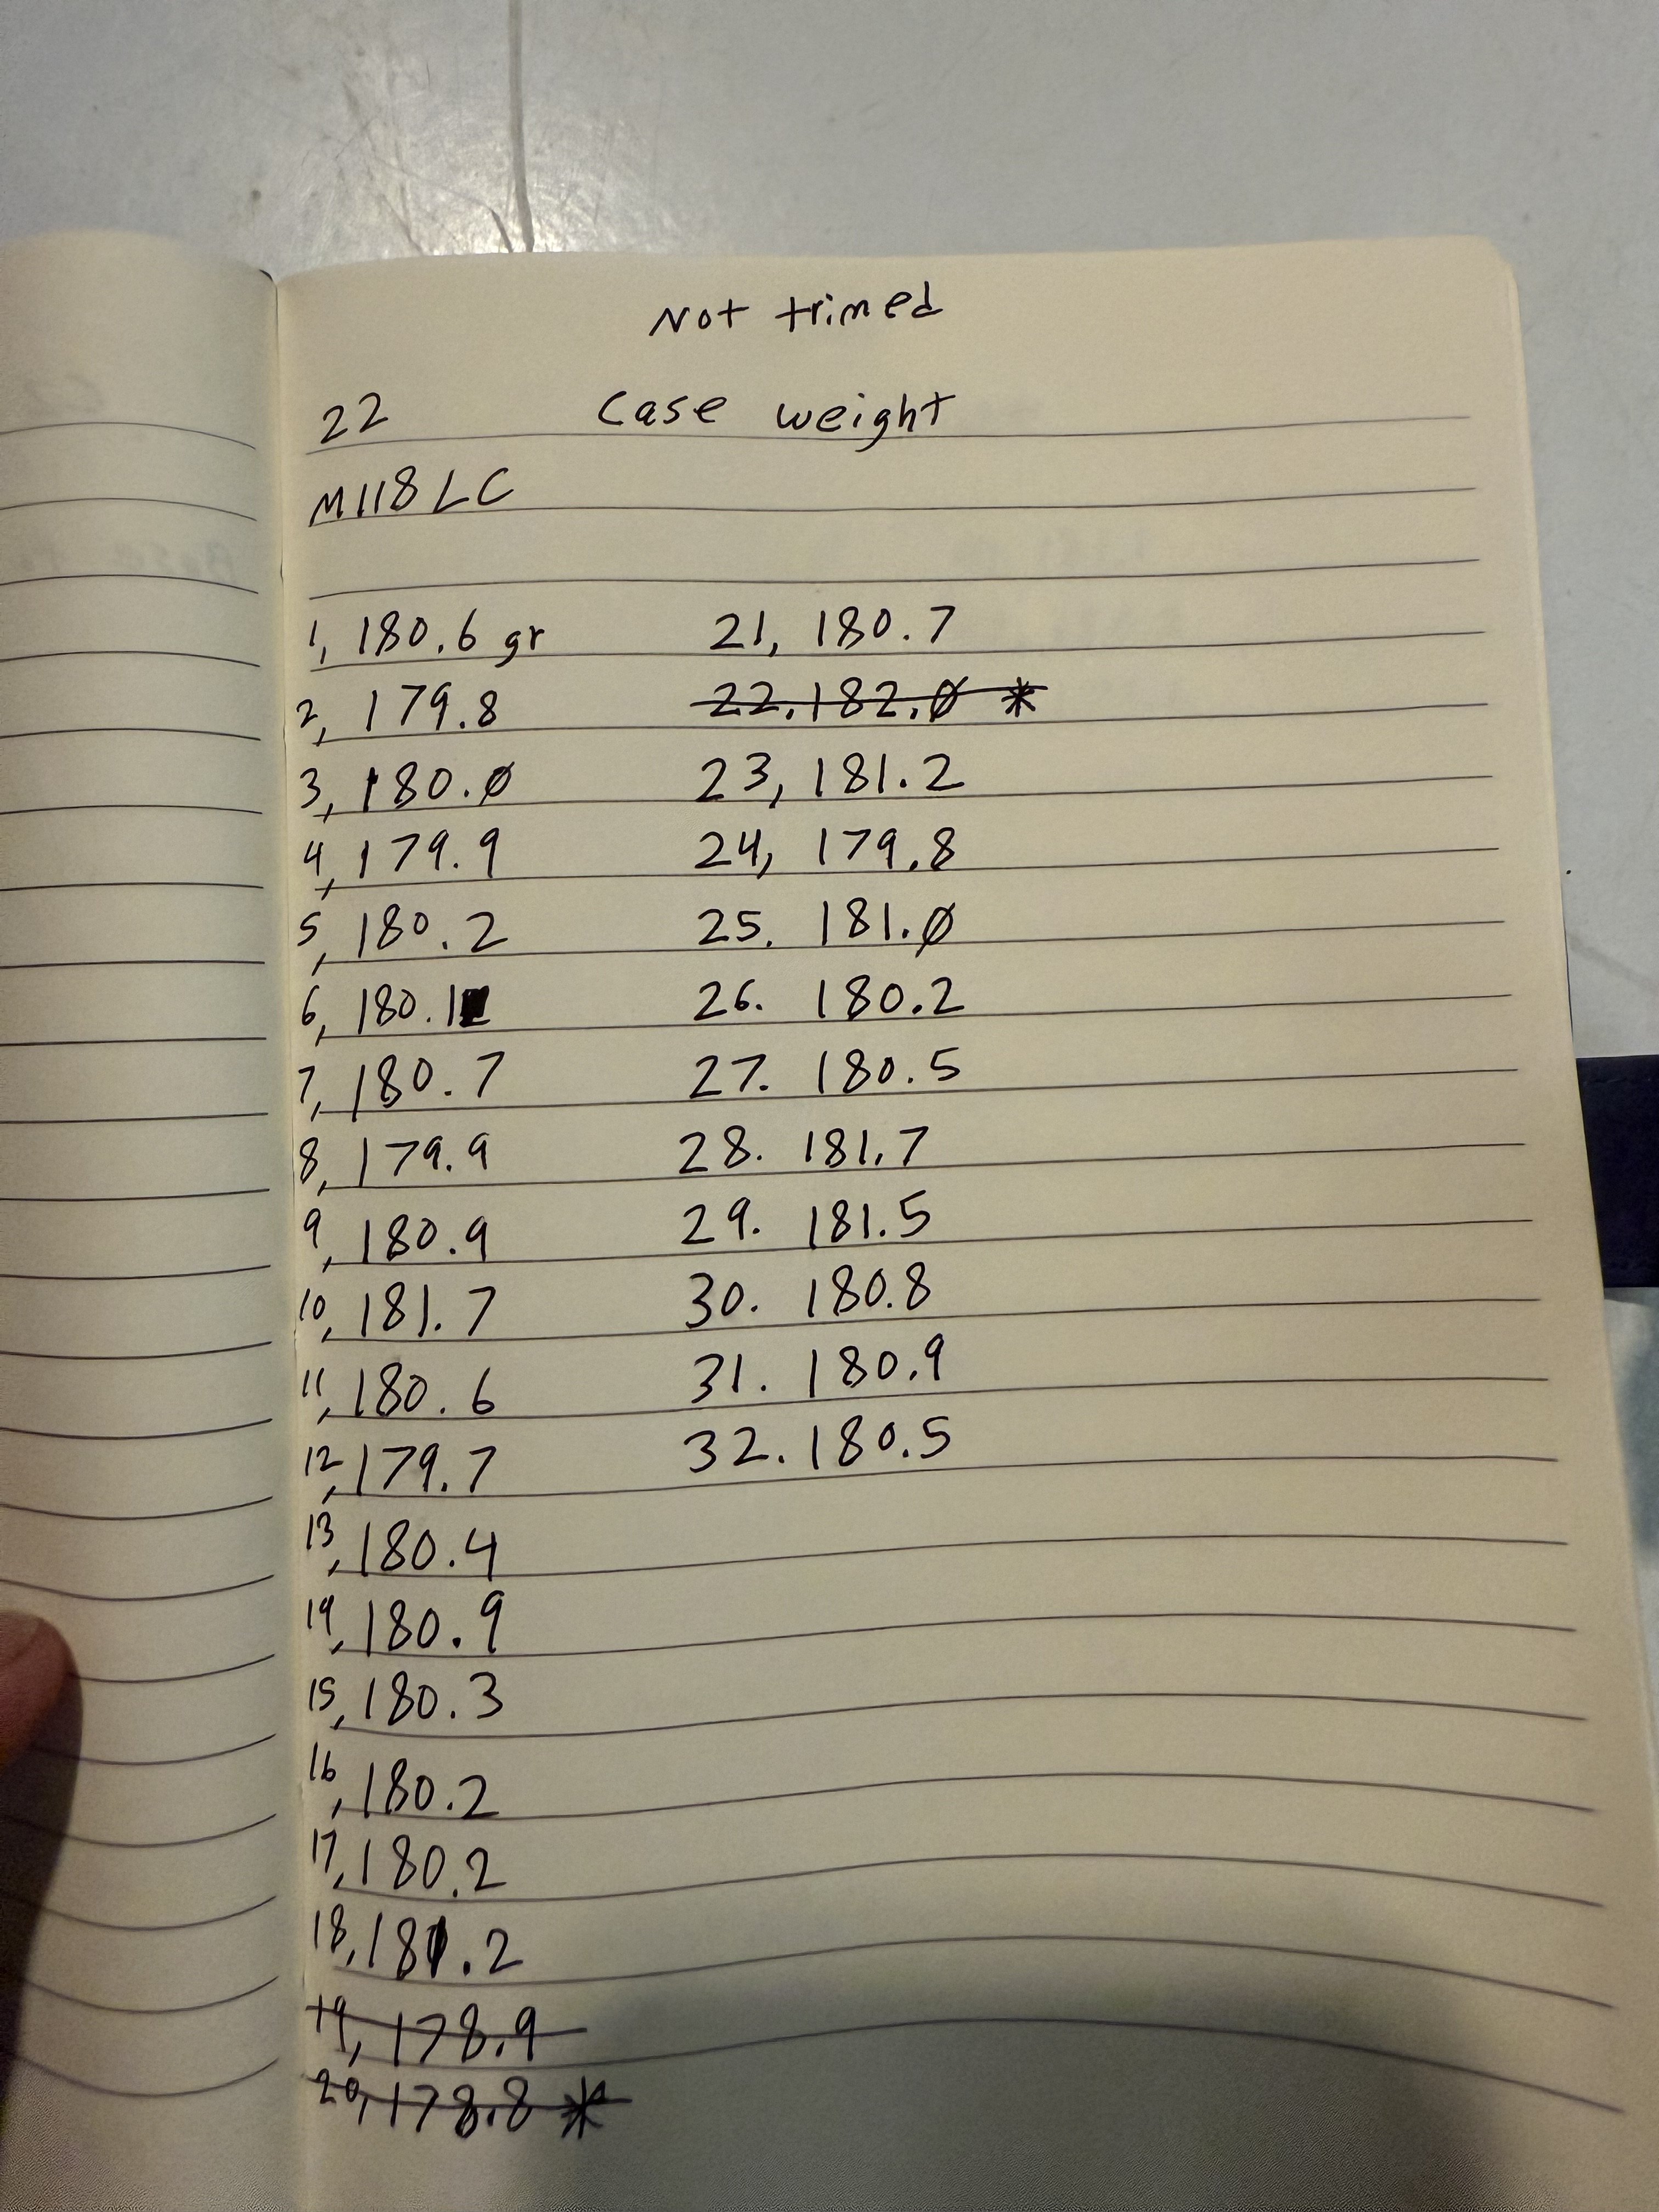 Not trimed
22 Case weight
M118LC
1, 180.6 gr
2, 179.8
3, 180.0
4, 179.9
5, 180.2
6, 180.1
7, 180.7
8, 179.9
9, 180.9
10, 181.7
11, 180.6
12, 179.7
13, 180.4
14, 180.9
15, 180.3
16, 180.2
17, 180.2
18, 181.2
19, 178.9
20, 178.8 *
21, 180.7
22. 182.0 *
23, 181.2
24, 179.8
25. 181.0
26. 180.2
27. 180.5
28. 181.7
29. 181.5
30. 180.8
31. 180.9
32. 180.5